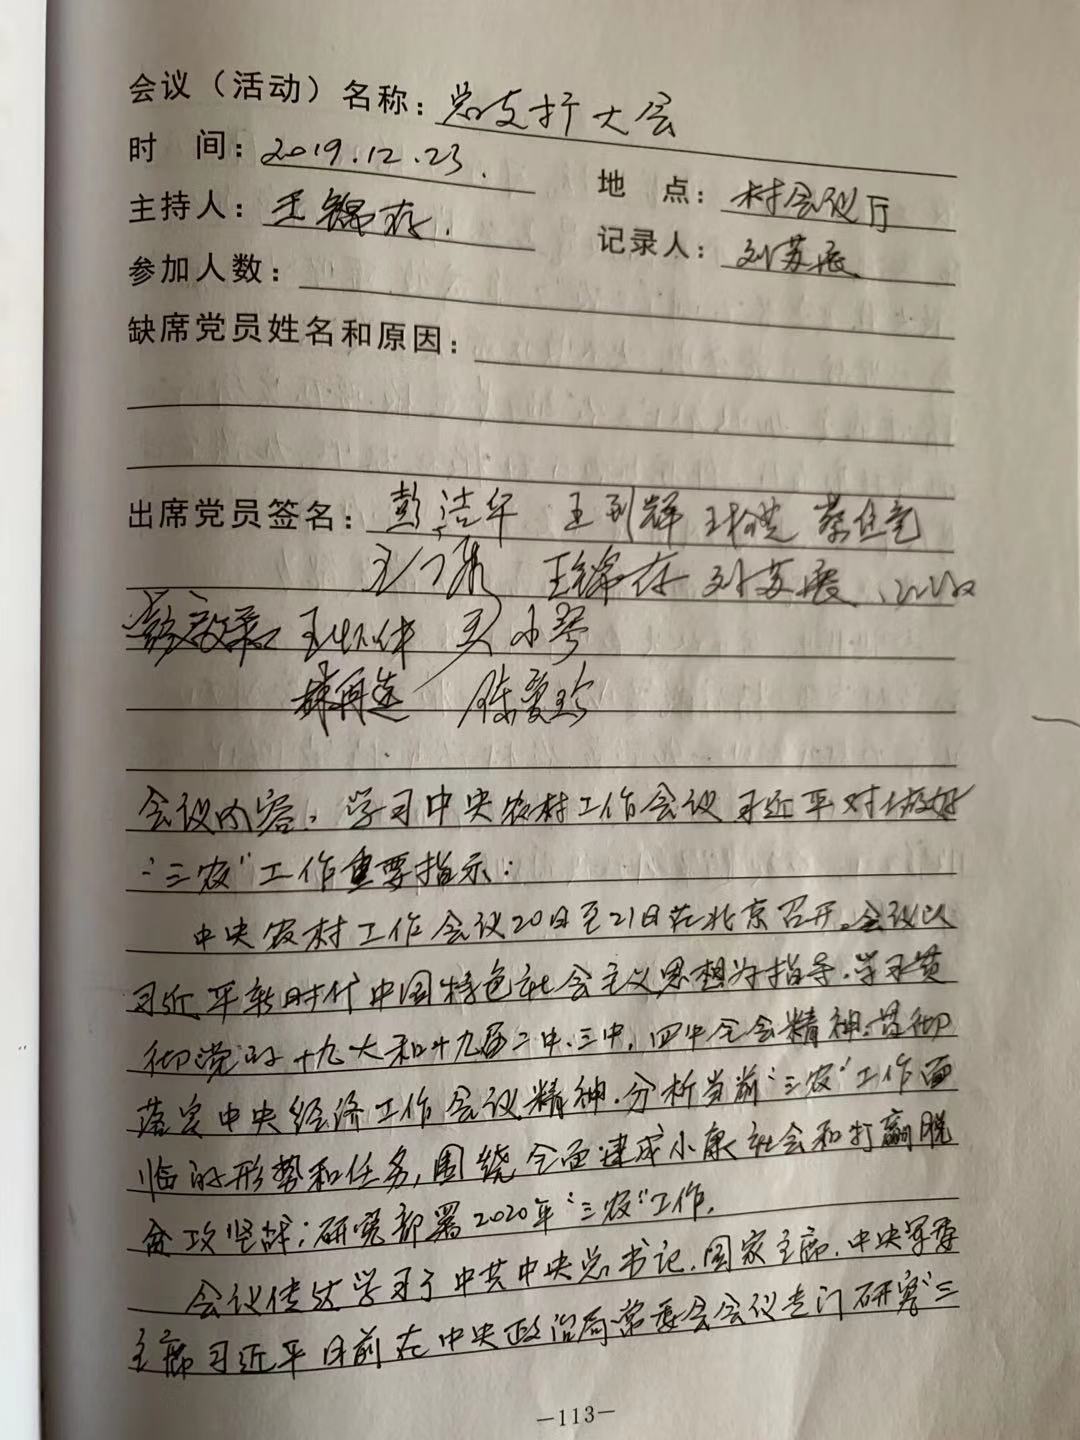 会议（活动）名称：总支扩大会
时 间：2019.12.23.
地 点：村会议厅
主持人：王锦存.
记录人：刘苏展
参加人数：
缺席党员姓名和原因：
出席党员签名：彭洁年 王到辉
王锦存 刘苏展
小琴
薛再造 陈爱珍
会议内容：学习中央农村工作会议习近平对做好
“三农”工作重要指示：
中央农村工作会议20日至21日在北京召开。会议以
习近平新时代中国特色社会主义思想为指导.学习贯
彻党的十九大和十九届二中、三中,四中全会精神.贯彻
落实中央经济工作会议精神.分析当前“三农”工作面
临的形势和任务,围绕全面建成小康社会和打赢脱
贫攻坚战;研究部署2020年“三农”工作.
会议传达学习了中共中央总书记.国家主席.中央军委
主席习近平日前在中央政治局常委会会议专门研究“三
—113—